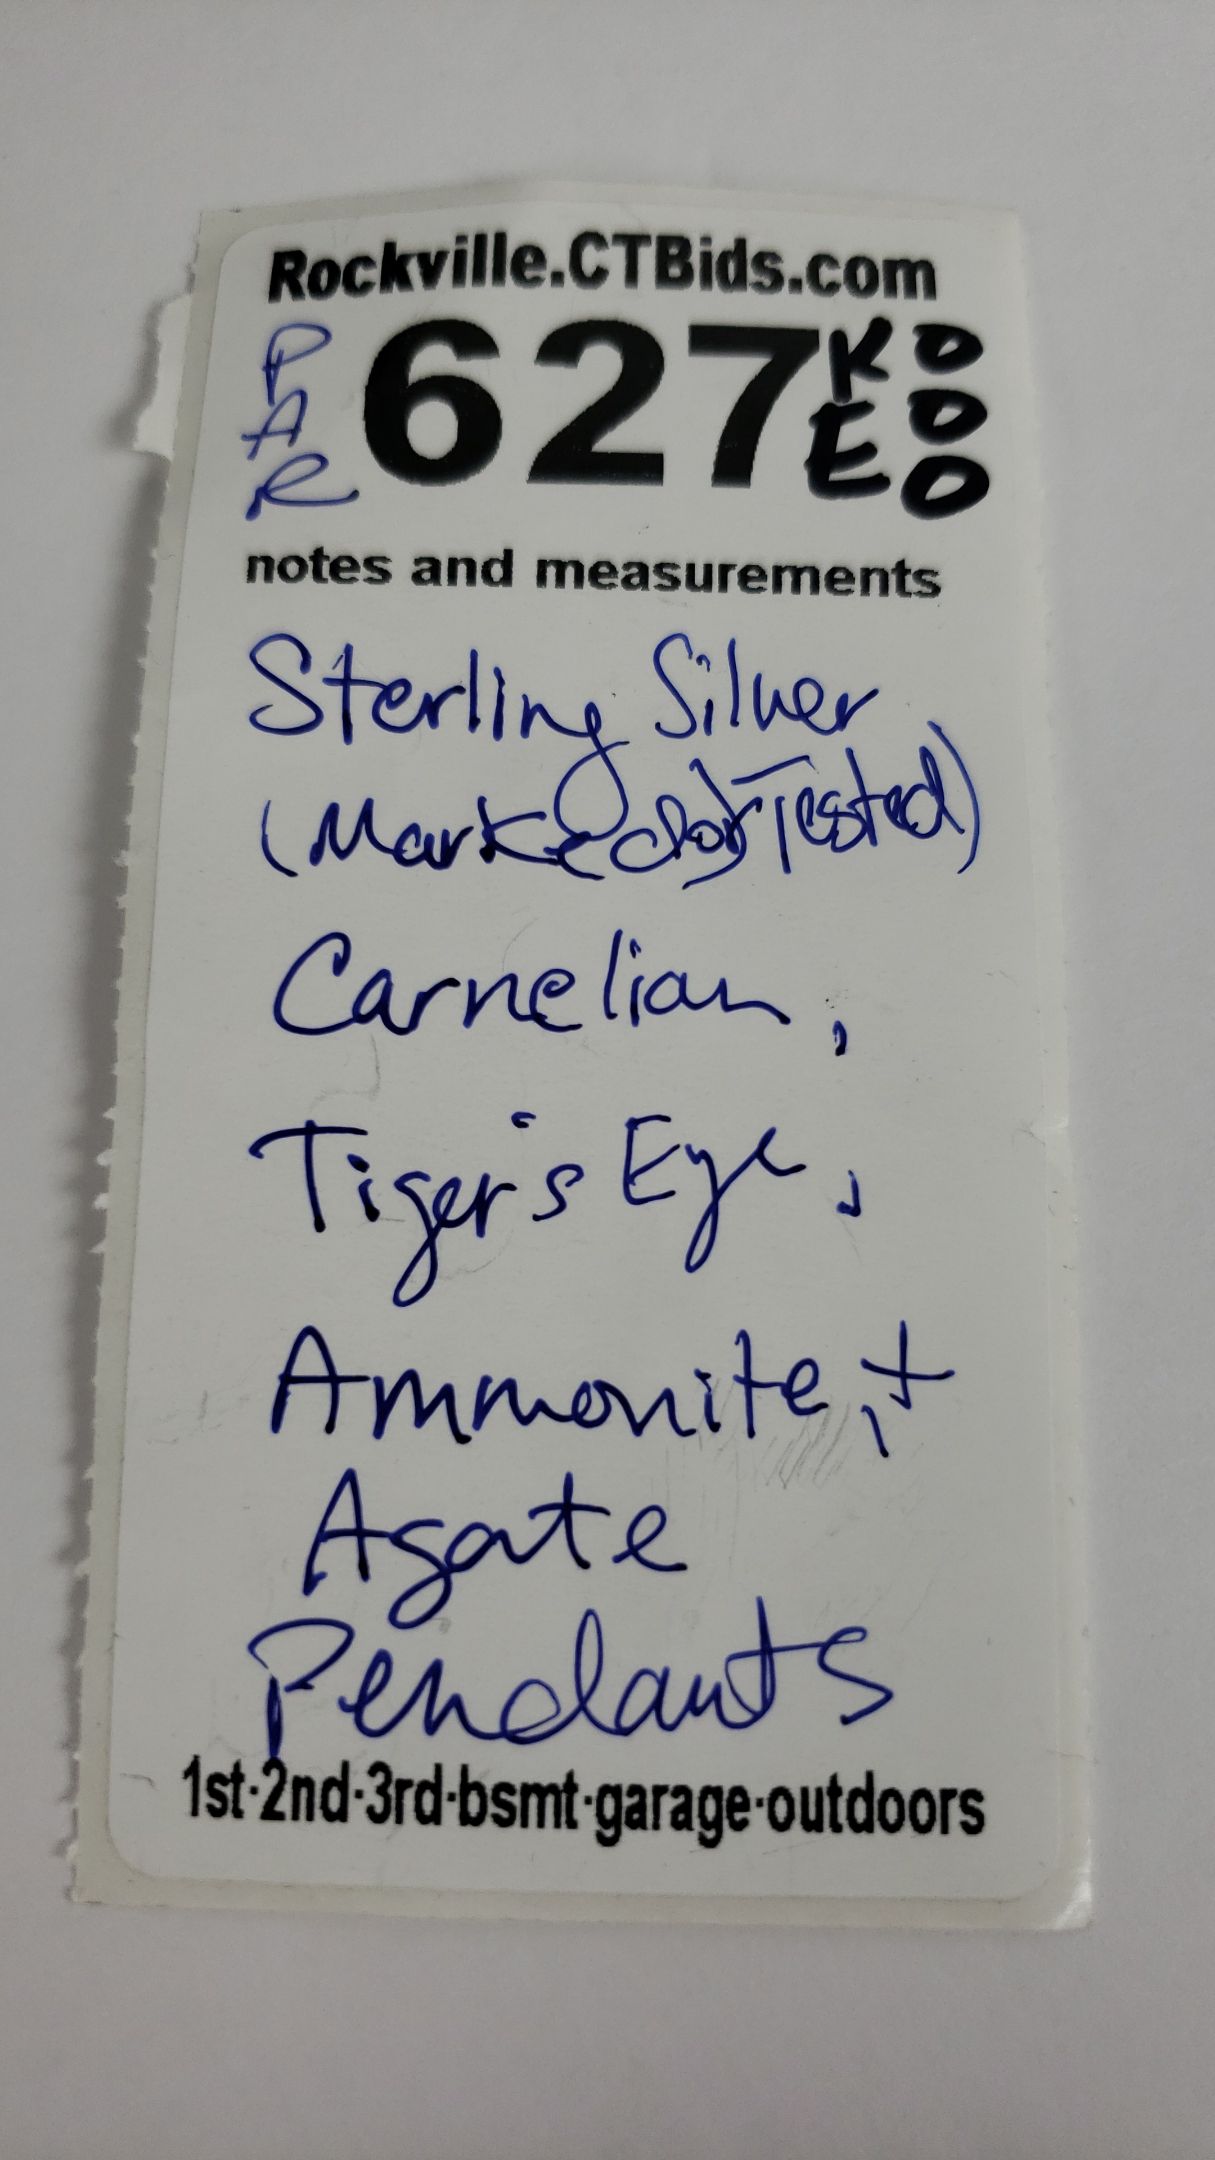 Rockville.CTBids.com
PAR 627 KE OOO
notes and measurements
Sterling Silver
(Marked or Tested)
Carnelian,
Tiger's Eye,
Ammonite, +
Agate
Pendants
1st·2nd·3rd·bsmt·garage·outdoors